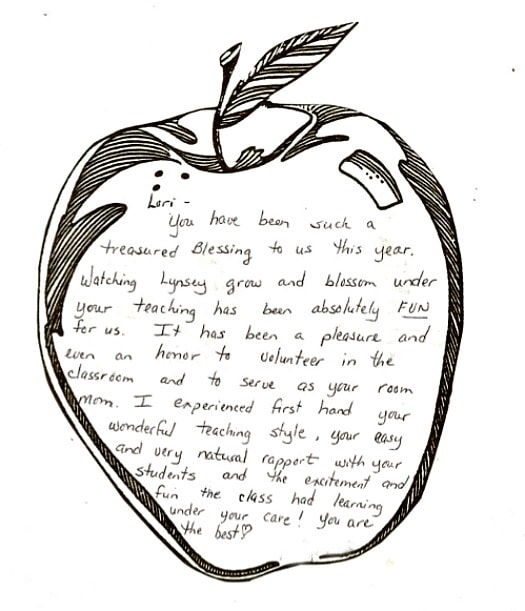 Lori -
You have been such a
treasured Blessing to us this year.
Watching Lynsey grow and blossom under
your teaching has been absolutely FUN
for us. It has been a pleasure and
even an honor to volunteer in the
classroom and to serve as your room
Mom. I experienced first hand your
wonderful teaching style, your easy
and very natural rapport with your
students and the excitement and
fun the class had learning
under your care! You are
the best♡